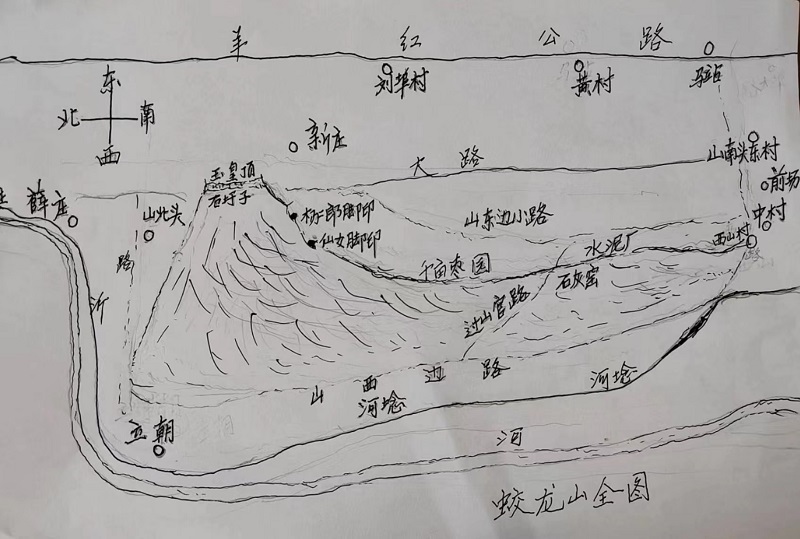 羊红公路
东
北
南
西
刘埠村
黄村
新庄
大路
山南头东村
玉皇顶
石圩子
前场
薛庄
山北头
杨二郎脚印
山东边小路
中村
仙女脚印
水泥厂
西山村
千亩枣园
石灰窑
路
沂
过山官路
山西边路
河埝
河埝
立朝
河
蛟龙山全图